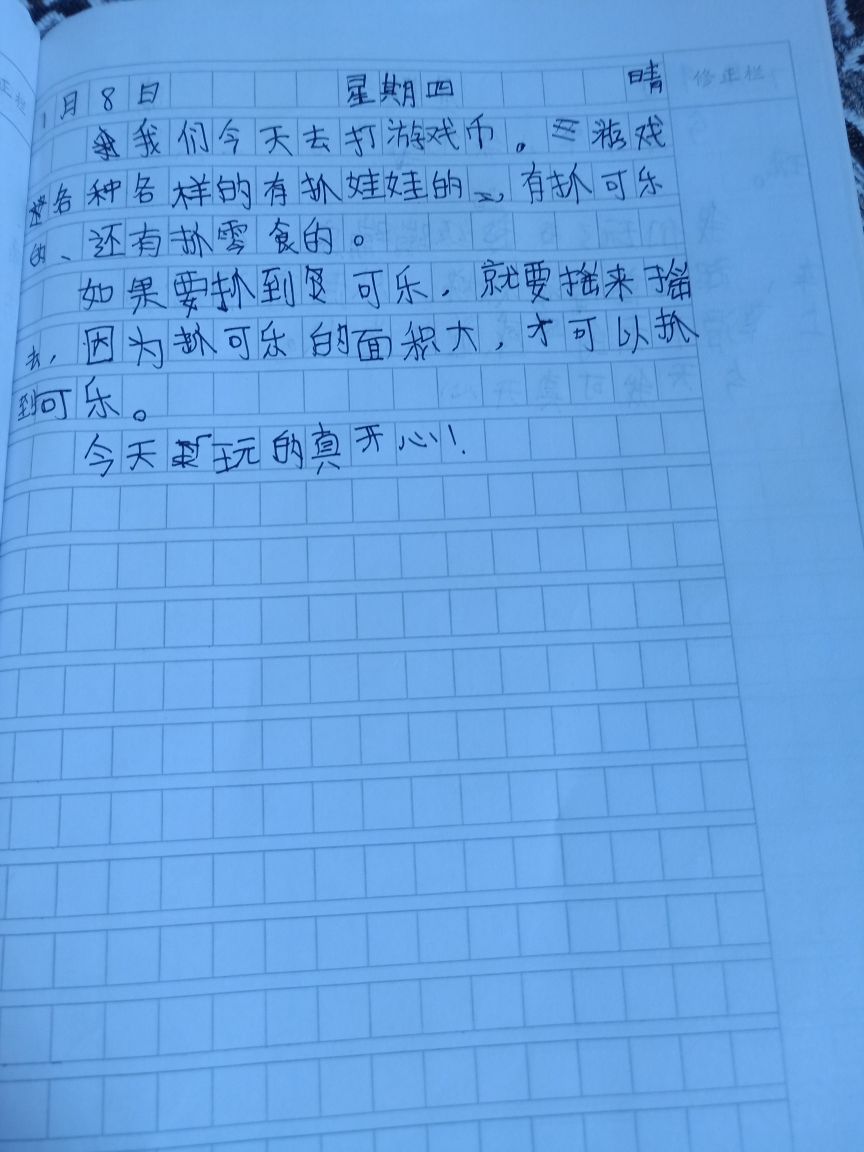 1月8日 星期四 晴 修正栏
我们今天去打游戏币。游戏
各种各样的有抓娃娃的，有抓可乐
的、还有抓零食的。
如果要抓到可乐，就要摇来摇
去，因为抓可乐的面积大，才可以抓
到可乐。
今天玩的真开心！